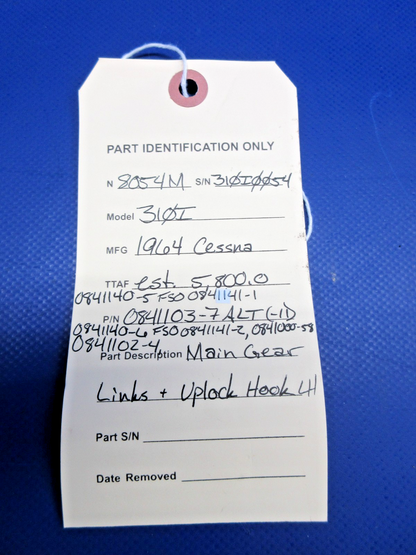 PART IDENTIFICATION ONLY
N 8054M S/N 310I0054
Model 310I
MFG 1964 Cessna
TTAF est. 5,800.0
0841140-5 FSO 0841141-1
P/N 0841103-7 ALT (-1)
0841140-6 FSO 0841141-2, 0841000-58
0841102-4
Part Description Main Gear
Links + Uplock Hook LH
Part S/N
Date Removed